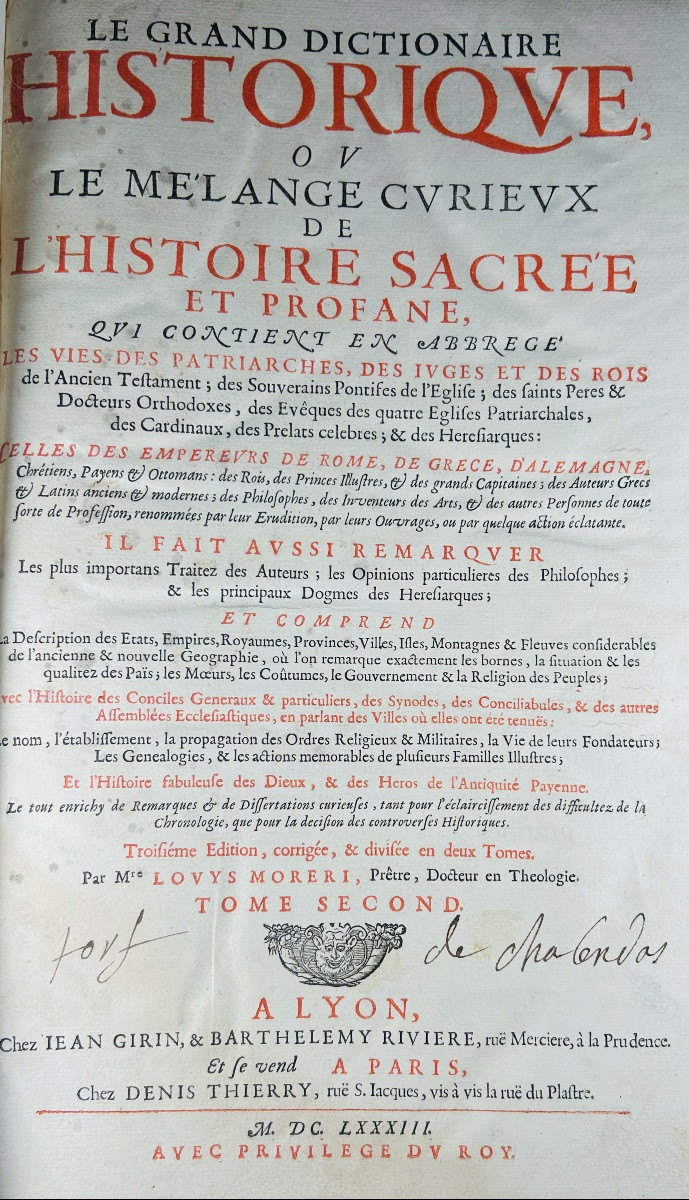 LE GRAND DICTIONAIRE
HISTORIQVE,
OV
LE MÉLANGE CVRIEVX
DE
L'HISTOIRE SACRÉE
ET PROFANE,
QVI CONTIENT EN ABBREGÉ
LES VIES DES PATRIARCHES, DES IVGES ET DES ROIS
de l'Ancien Teſtament ; des Souverains Pontifes de l'Egliſe ; des ſaints Peres &
Docteurs Orthodoxes, des Evêques des quatre Egliſes Patriarchales,
des Cardinaux, des Prelats celebres ; & des Hereſiarques :
CELLES DES EMPEREVRS DE ROME, DE GRECE, D'ALEMAGNE,
Chrétiens, Payens & Ottomans : des Rois, des Princes Illuſtres, & des grands Capitaines ; des Auteurs Grecs
& Latins anciens & modernes ; des Philoſophes, des Inventeurs des Arts, & des autres Perſonnes de toute
ſorte de Profeſſion, renommées par leur Erudition, par leurs Ouvrages, ou par quelque action éclatante.
IL FAIT AVSSI REMARQVER
Les plus importans Traitez des Auteurs ; les Opinions particulieres des Philoſophes ;
& les principaux Dogmes des Hereſiarques ;
ET COMPREND
La Deſcription des Etats, Empires, Royaumes, Provinces, Villes, Iſles, Montagnes & Fleuves conſiderables
de l'ancienne & nouvelle Geographie, où l'on remarque exactement les bornes, la ſituation & les
qualitez des Païs ; les Mœurs, les Coûtumes, le Gouvernement & la Religion des Peuples ;
avec l'Hiſtoire des Conciles Generaux & particuliers, des Synodes, des Conciliabules, & des autres
Aſſemblées Eccleſiaſtiques, en parlant des Villes où elles ont été tenuës :
Le nom, l'établiſſement, la propagation des Ordres Religieux & Militaires, la Vie de leurs Fondateurs ;
Les Genealogies, & les actions memorables de pluſieurs Familles Illuſtres ;
Et l'Hiſtoire fabuleuſe des Dieux, & des Heros de l'Antiquité Payenne.
Le tout enrichy de Remarques & de Diſſertations curieuſes, tant pour l'éclairciſſement des difficultez de la
Chronologie, que pour la deciſion des controverſes Hiſtoriques.
Troiſiéme Edition, corrigée, & diviſée en deux Tomes.
Par Mre LOVYS MORERI, Prêtre, Docteur en Theologie.
TOME SECOND.
de
A LYON,
Chez IEAN GIRIN, & BARTHELEMY RIVIERE, ruë Merciere, à la Prudence.
Et ſe vend A PARIS,
Chez DENIS THIERRY, ruë S. Iacques, vis à vis la ruë du Plaſtre.
M. DC. LXXXIII.
AVEC PRIVILEGE DV ROY.